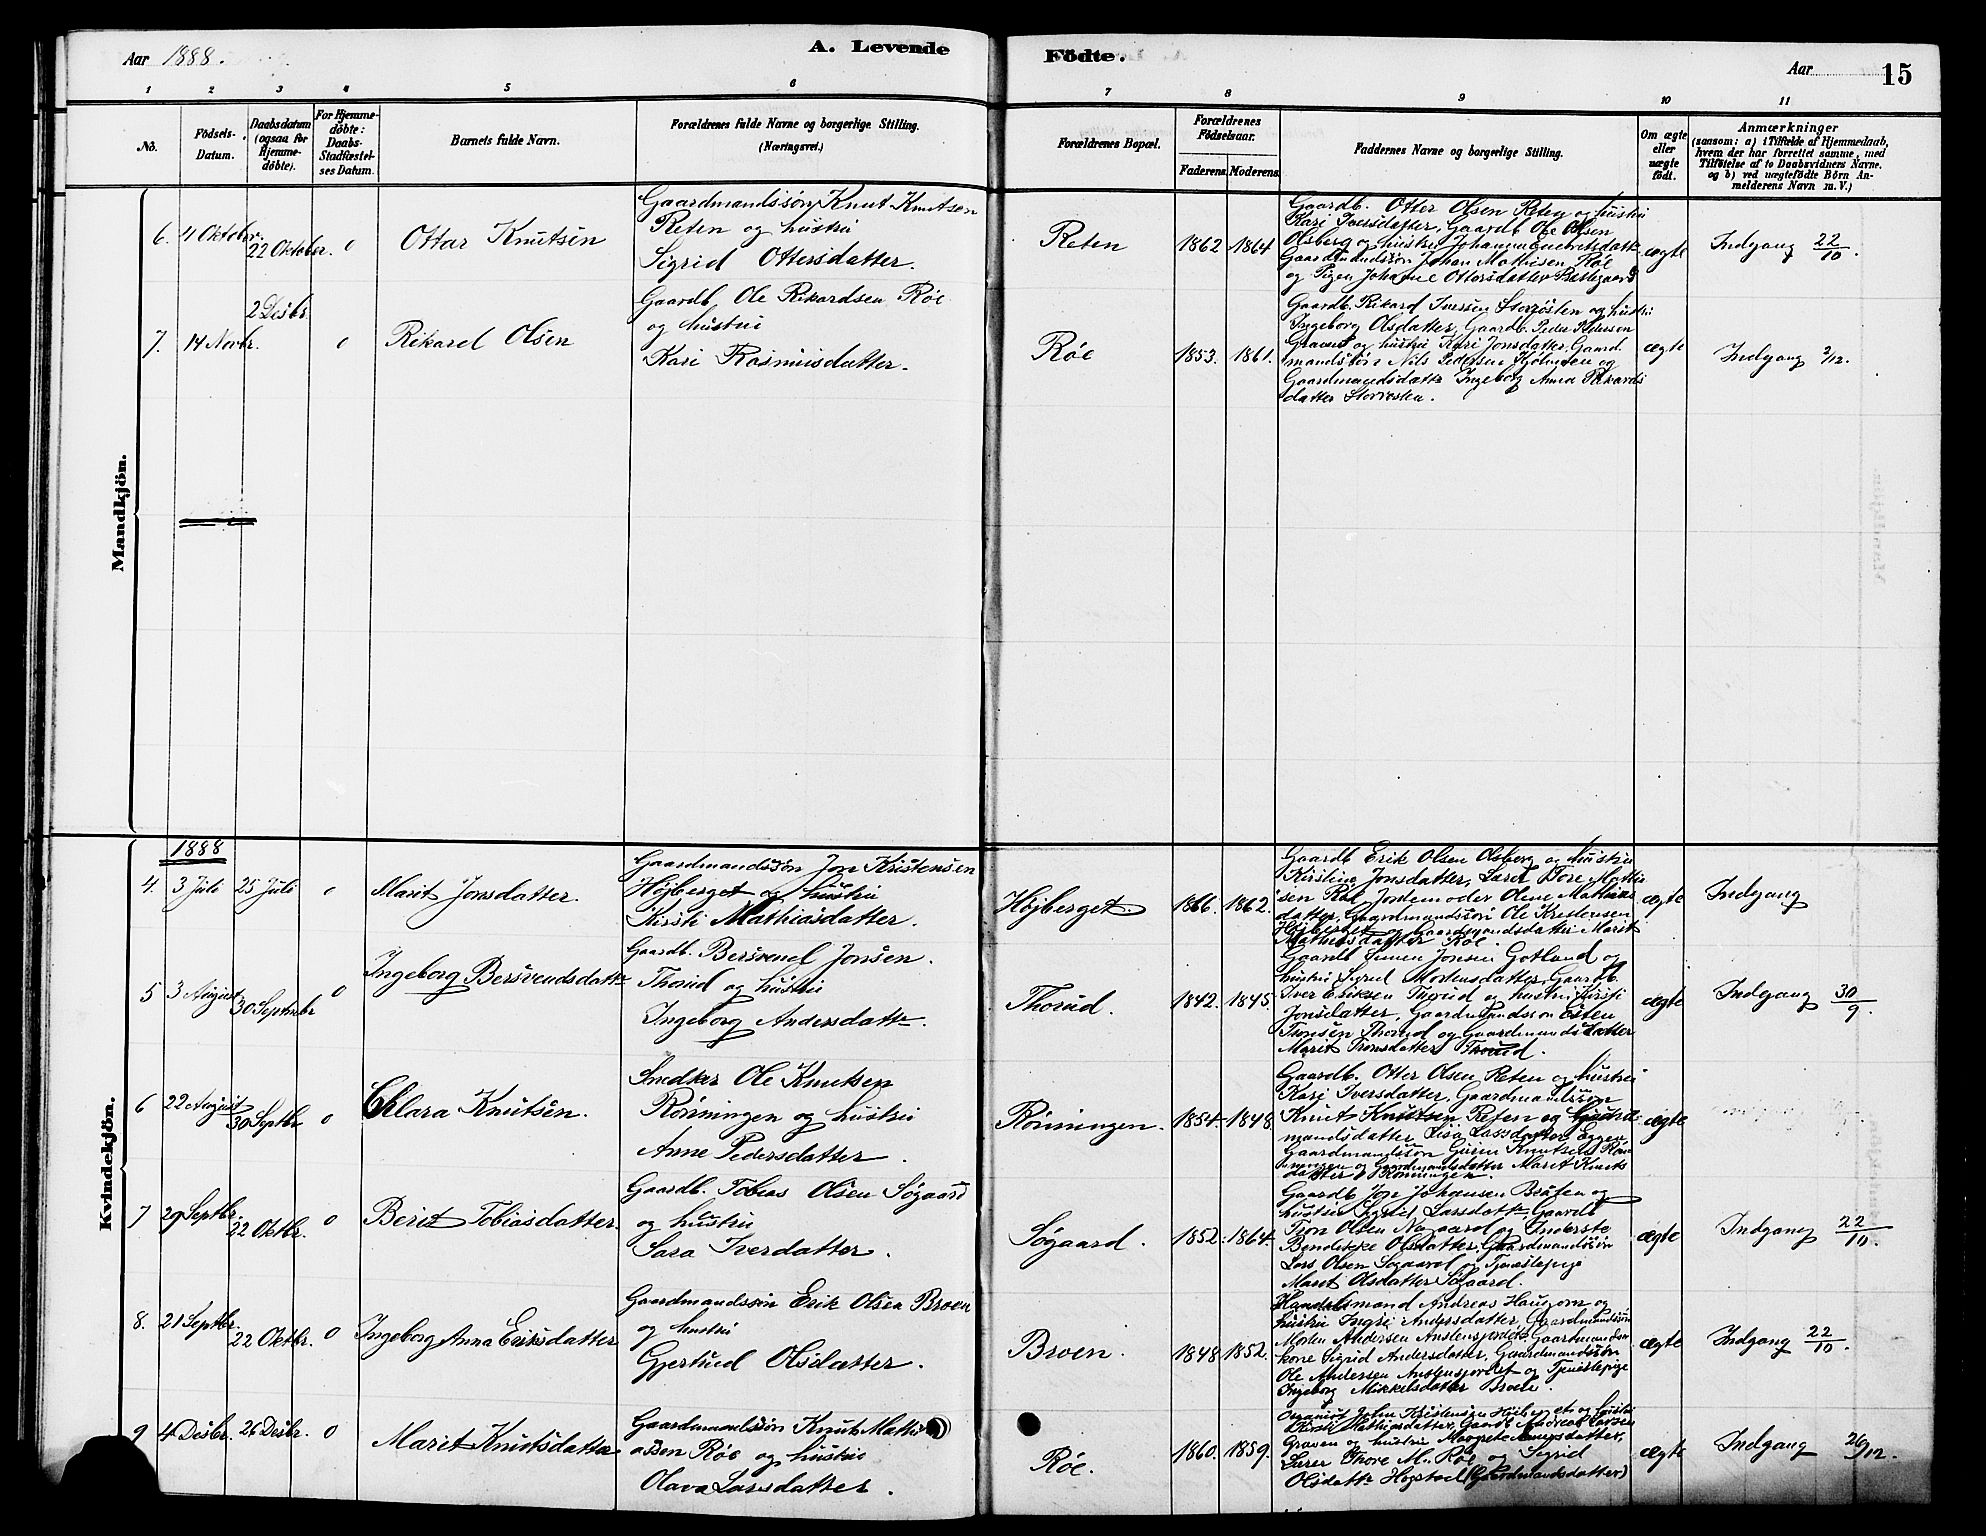 Aar 1888.
A. Levende
Födte.
Aar
15
1 2 3 4 5 6 7 8 9 10 11
No.
Födsels-
Datum.
Daabsdatum
(ogsaa for
Hjemme-
döbte).
For Hjemme-
döbte:
Daabs-
Stadfæstel-
ses Datum.
Barnets fulde Navn.
Forældrenes fulde Navne og borgerlige Stilling.
(Næringsvei.)
Forældrenes Bopæl.
Forældrenes
Födselsaar.
Faderens. Moderens.
Faddernes Navne og borgerlige Stilling.
Om ægte
eller
uægte
födt.
Anmærkninger
(saasom: a) i Tilfælde af Hjemmedaab,
hvem der har forrettet samme, med
Tilföielse af to Daabsvidners Navne.
og b) ved uægtefödte Börn An-
melderens Navn m. V.)
Mandkjön.
6. 4 Oktober. 22 Oktober. 0 Ottar Knutsen
Gaardmandssön Knut Knutsen
Reten og hustru
Sigrid Ottersdatter.
Reten 1862 1864
Gaardb. Otter Olsen Reten og hustru
Kari Iversdatter, Gaardb Ole Olsen
Olsberg og hustru Johanna
Gaardmandssön Johan Mathisen Røe
og Pigen Johanne Ottersdatter
ægte Indgang 22/10.
7. 14 Novbr. 2 Desbr. 0 Rikard Olsen
Gaardb. Ole Rikardsen Røe
og hustru
Kari Rasmusdatter.
Røe 1853. 1861.
Gaardb. Rikard Iversen Storrøsten og hustru
Ingeborg Olsdatter, Gaardb. Peder Pedersen
Graven og hustru Kari Jonsdatter, Gaard
mandssön Nils Pedersen og
Gaardmandsdattr Ingeborg Anna Rikards
datter Storrøsten.
ægte Indgang 2/12.
Kvindekjön.
1888
4. 3 Juli 25 Juli 0 Marit Jonsdatter.
Gaardmandssön Jon Kristensen
Højberget og hustru
Kirsti Mathiasdatter.
Højberget. 1866. 1862.
Gaardb Erik Olsen Olsberg og hustru
Kirstine Jonsdatter, Lærer Tore Mathi
sen Røe Jordemoder Olene Mathias
datter, Gaardmandssön Ole Kristensen
Højberget og Gaardmandsdatter Marit
Mathiasdatter Røe.
ægte Indgang
5 3 August 30 Septmbr 0 Ingeborg Bersvendsdattr
Gaardb. Bersvend Jonsen.
Thorud og hustru
Ingeborg Andersdattr.
Thorud. 1842. 1845.
Gaardb Jonsen Gotland og
hustru Sigrid Mortensdatter, Gaardb.
Iver Eriksen Thorud og hustru Kirsti
Jonsdatter, Gaardmandssøn Esten
Tronsen Thorud og Gaardmandsdatter
Marit Tronsdatter Thorud.
ægte Indgang 30/9.
6 22 August 30 Septbr 0 Klara Knutsen.
Snedker Ole Knutsen
Rønningen og hustru
Anne Pedersdatter.
Rønningen. 1854 1848
Gaardb. Otter Olsen Reten og hustru
Kari Iversdatter, Gaardmandssön
Knut Knutsen Reten og Gaard
mandsdatter Lisa Larsdatter Eggen
Gaardmandssön Knutsen Røn
ningen og Gaardmandsdatter Marit Knuts
datter Rønningen.
ægte
7 29 Septbr. 22 Oktbr. 0 Berit Tobiasdatter.
Gaardb. Tobias Olsen Søgaard
og hustru
Sara Iverdatter.
Søgaard. 1852. 1864
Gaardb Jon Johansen og
hustru Sigrid Larsdattr, Gaardb
Tron Olsen Nygaard og
Olsdatter, Gaardmandssön
Lars Olsen Søgaard og Tjenestepige
Marit Olsdatter Søgaard.
ægte Indgang 22/10.
8. 21 Septbr. 22 Oktbr. 0 Ingeborg Anna Eriksdatter
Gaardmandssön Erik Olsen Broen
og hustru
Gjertrud Olsdatter.
Broen. 1848 1852.
Handelsmand Andreas Haugorn og
hustru Ingri Andersdatter, Gaardmandssön
Morten Andersen Gaardmands
kone Sigrid Andersdatter, Gaardmandssön
Ole Andersen og Tjenestepige
Ingeborg Mikkelsdatter Broen.
ægte Indgang 22/10.
9 4 Desbr. 26 Desbr. 0 Marit Knutsdatter
Gaardmandssön Knut Mathi
assen Røe og hustru
Olava Larsdatter.
Røe. 1860. 1859.
John Kristensen Højberget og hustru
Kirsti Mathiasdatter, Gaardb Andreas Larsen
Graven og hustru
Lærer Thore M. Røe og Sigrid
Olsdattr Hogstad (Gaardmandsdatter)
ægte Indgang 26/12.